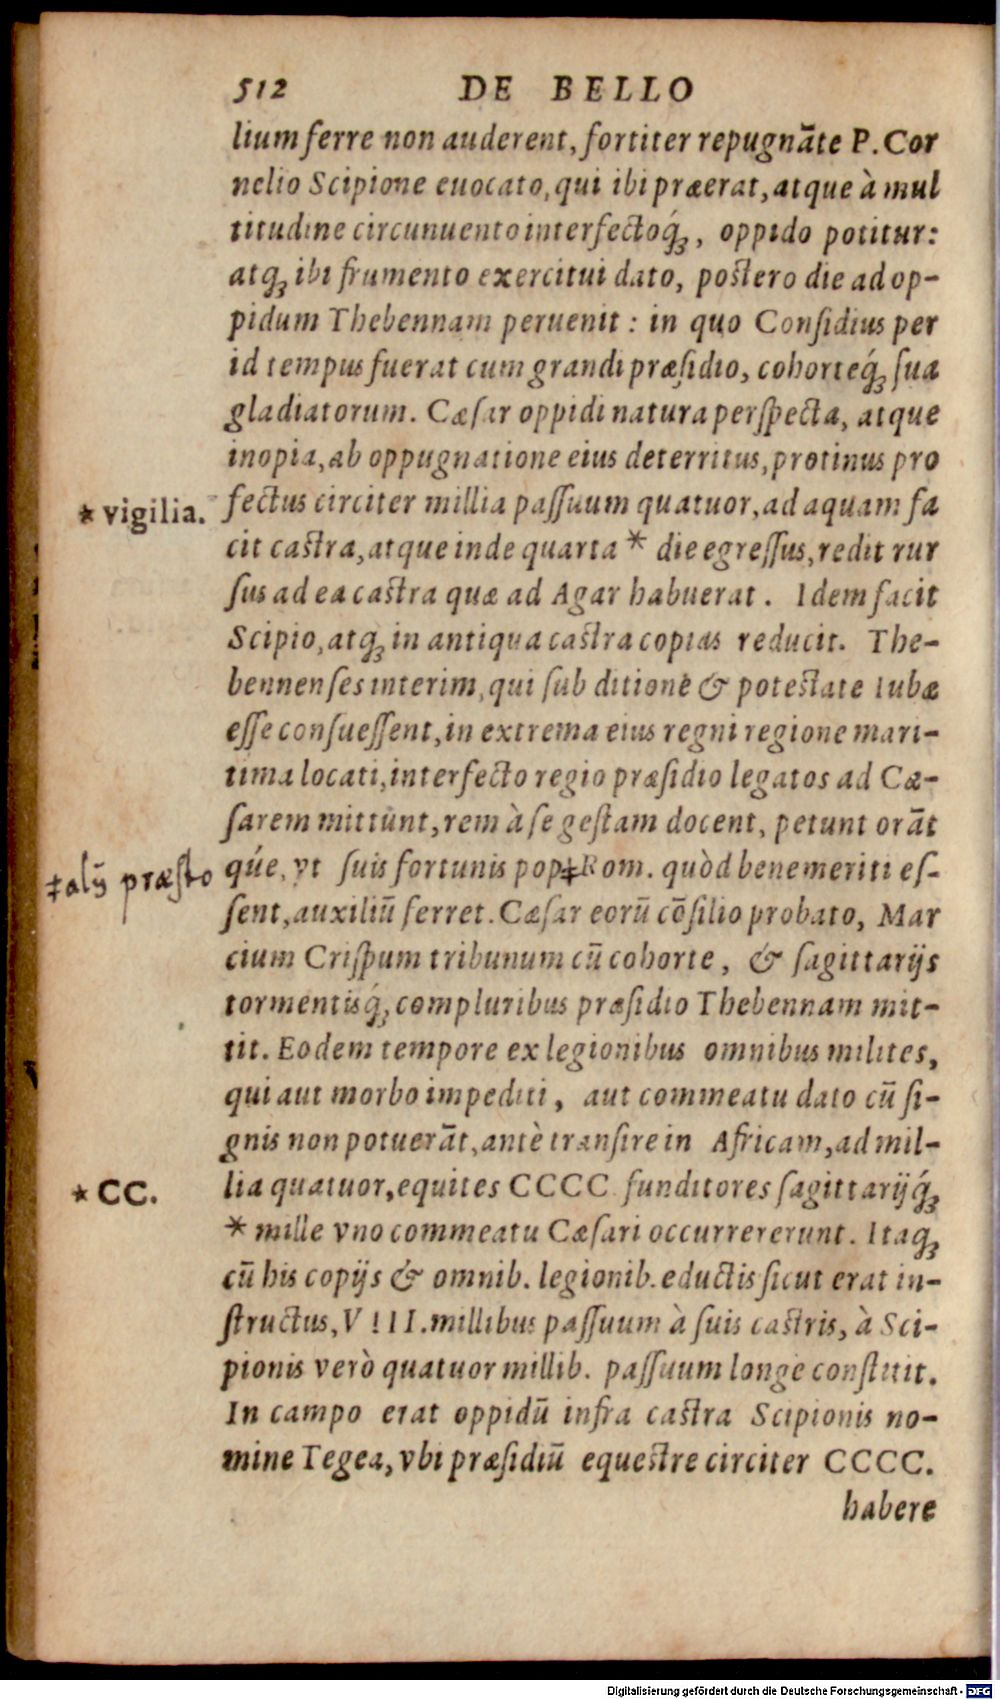 512 DE BELLO
lium ferre non auderent, fortiter repugnãte P. Cor
nelio Scipione euocato, qui ibi præerat, atque à mul
titudine circunuento interfectoq́ꝫ, oppido potitur:
atqꝫ ibi frumento exercitui dato, postero die ad op-
pidum Thebennam peruenit: in quo Considius per
id tempus fuerat cum grandi præsidio, cohorteq́ꝫ sua
gladiatorum. Cæsar oppidi natura perspecta, atque
inopia, ab oppugnatione eius deterritus, protinus pro
fectus circiter millia passuum quatuor, ad aquam fa
* vigilia.
cit castra, atque inde quarta * die egressus, redit rur
sus ad ea castra quæ ad Agar habuerat. Idem facit
Scipio, atqꝫ in antiqua castra copias reducit. The-
bennenses interim, qui sub ditione & potestate Iubæ
esse consuessent, in extrema eius regni regione mari-
tima locati, interfecto regio præsidio legatos ad Cæ-
sarem mittunt, rem à se gestam docent, petunt orãt
‡alij præsto
qúe, vt suis fortunis pop‡Rom. quòd benemeriti es-
sent, auxiliũ ferret. Cæsar eorũ cõsilio probato, Mar
cium Crispum tribunum cũ cohorte, & sagittarijs
tormentisq́ꝫ compluribus præsidio Thebennam mit-
tit. Eodem tempore ex legionibus omnibus milites,
qui aut morbo impediti, aut commeatu dato cũ si-
gnis non potuerãt, antè transire in Africam, ad mil-
* CC.
lia quatuor, equites CCCC funditores sagittarijq́ꝫ
* mille vno commeatu Cæsari occurrererunt. Itaqꝫ
cũ his copijs & omnib. legionib. eductis sicut erat in-
structus, VIII. millibus passuum à suis castris, à Sci-
pionis verò quatuor millib. passuum longe constitit.
In campo erat oppidũ infra castra Scipionis no-
mine Tegea, vbi præsidiũ equestre circiter CCCC.
habere
Digitalisierung gefördert durch die Deutsche Forschungsgemeinschaft - DFG